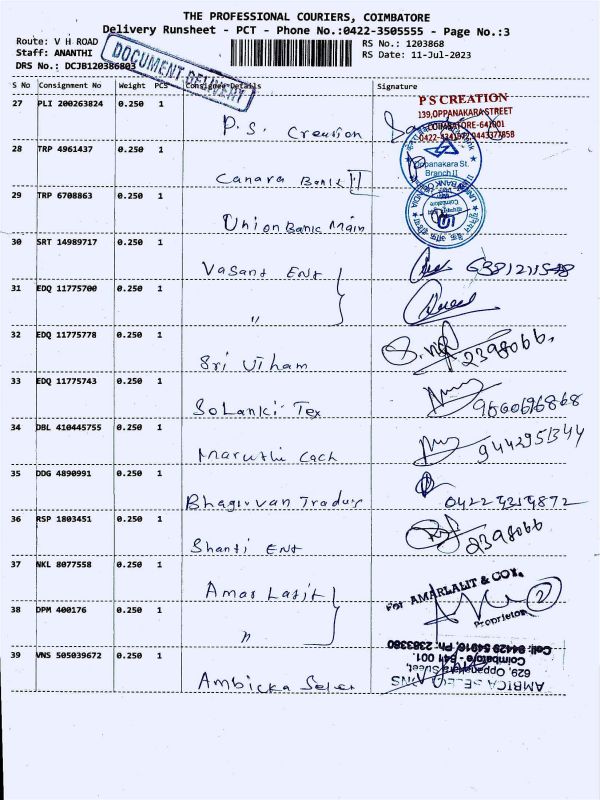 THE PROFESSIONAL COURIERS, COIMBATORE
Delivery Runsheet - PCT - Phone No.:0422-3505555 - Page No.:3
Route: V H ROAD
Staff: ANANTHI
DRS No.: DCJB120386803
DOCUMENT DELIVERY
RS No.: 1203868
RS Date: 11-Jul-2023
S No Consignment No Weight PCS Consignee Details Signature
27 PLI 200263824 0.250 1 P.S. Creation
P S CREATION
139,OPPANAKARA STREET
COIMBATORE-641001
28 TRP 4961437 0.250 1 Canara Bank II
Oppanakara St.
Branch II
29 TRP 6708863 0.250 1 Union Bank Main
30 SRT 14989717 0.250 1 Vasant Ent
31 EDQ 11775700 0.250 1 "
32 EDQ 11775778 0.250 1 Sri Utham 2398066
33 EDQ 11775743 0.250 1 Solanki Tex
34 DBL 410445755 0.250 1 Maruthi Cach 9442951344
35 DDG 4890991 0.250 1
36 RSP 1803451 0.250 1 Shanti Ent 2398066
37 NKL 8077558 0.250 1 Amar Lalit
For AMARLALIT & COY.
Proprietor
2
38 DPM 400176 0.250 1 "
39 VNS 505039672 0.250 1 Ambicka Selec
AMBICA SELECTIONS
629, Oppanakara Street,
Coimbatore - 641 001.
Cell: 94429 54916, Ph: 2383380